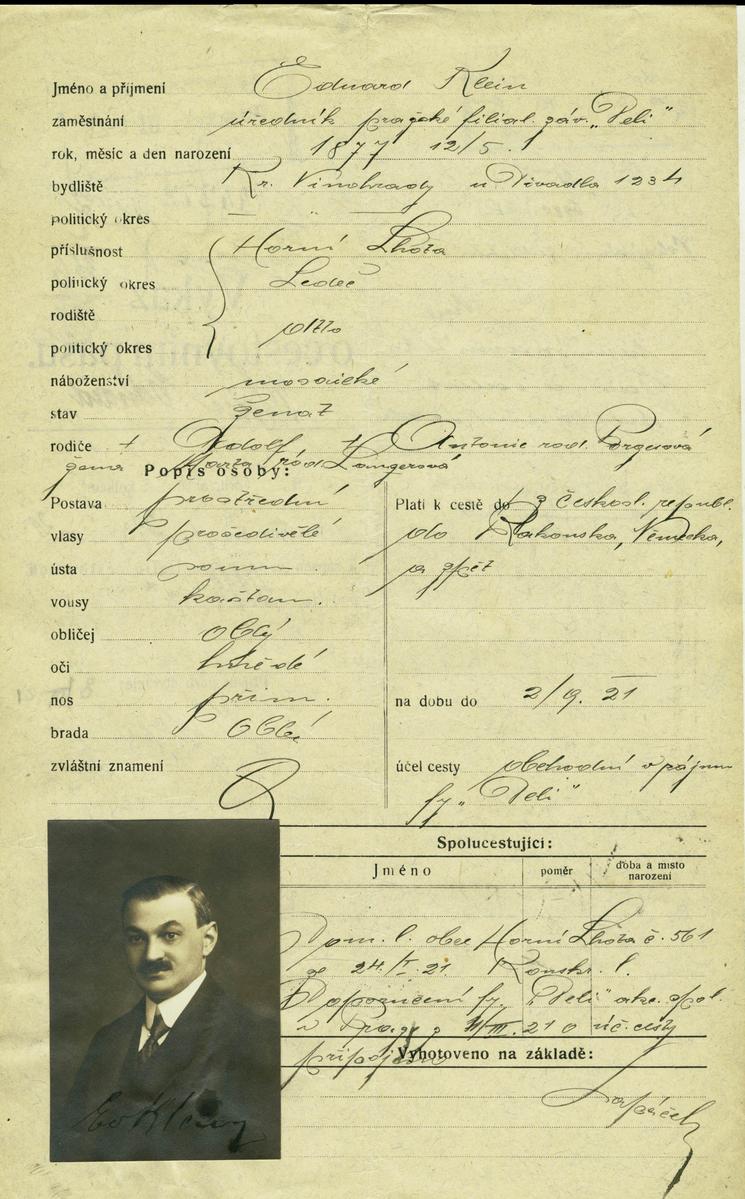 Jméno a příjmení Eduard Klein
zaměstnání úředník pražské filial. záv. „Peli“
rok, měsíc a den narození 1877 12/5.
bydliště Kr. Vinohrady u Divadla 1234
politický okres — „ —
příslušnost Horní Lhota
politický okres Ledeč
rodiště
politický okres ditto
náboženství mosaické
stav ženat
rodiče + Adolf + Antonie rod. Porgesová
žena Marta rod. Langerová
Popis osoby:
Postava prostřední
vlasy prošedivělé
ústa soum
vousy kaštan.
obličej oblý
oči hnědé
nos přím.
brada oblá
zvláštní znamení
Platí k cestě do z českosl. republ.
do Rakouska, Německa,
a zpět
na dobu do 2/9. 21
účel cesty obchodní v zájmu
fy „Peli“
Spolucestující:
Jméno poměr doba a místo narození
Dom. l. obce Horní Lhota č. 561
ze 24./I. 21. Konskr. l.
Doporučení fy. „Peli“ akc. spol.
v Praze z III. 21 o úč. cesty
připojeno
Vyhotoveno na základě:
Ed Klein